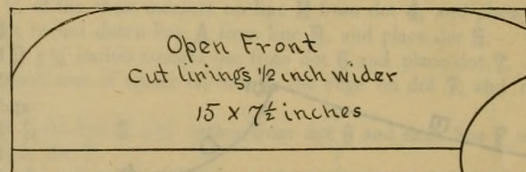 Open Front
Cut linings 1/2 inch wider
15 x 7 1/2 inches